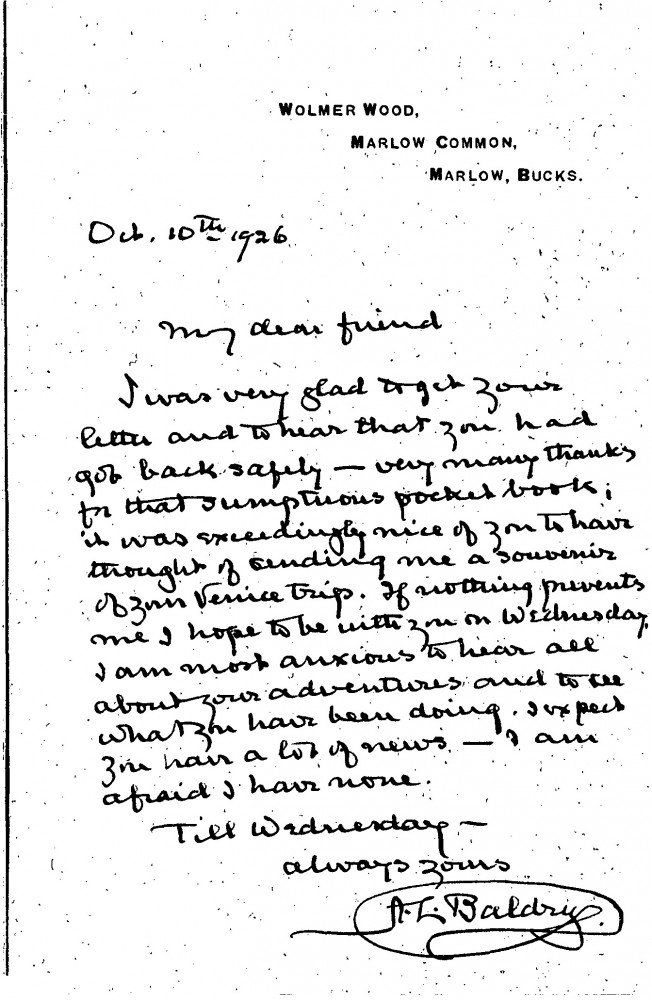 WOLMER WOOD,
MARLOW COMMON,
MARLOW, BUCKS.
Oct. 10th 1926
My dear friend
I was very glad to get your
letter and to hear that you had
got back safely — very many thanks
for that sumptuous pocket book;
it was exceedingly nice of you to have
thought of sending me a souvenir
of your Venice trip. If nothing prevents
me I hope to be with you on Wednesday.
I am most anxious to hear all
about your adventures and to see
what you have been doing. I expect
you have a lot of news — I am
afraid I have none.
Till Wednesday —
always yours
A.L. Baldry.